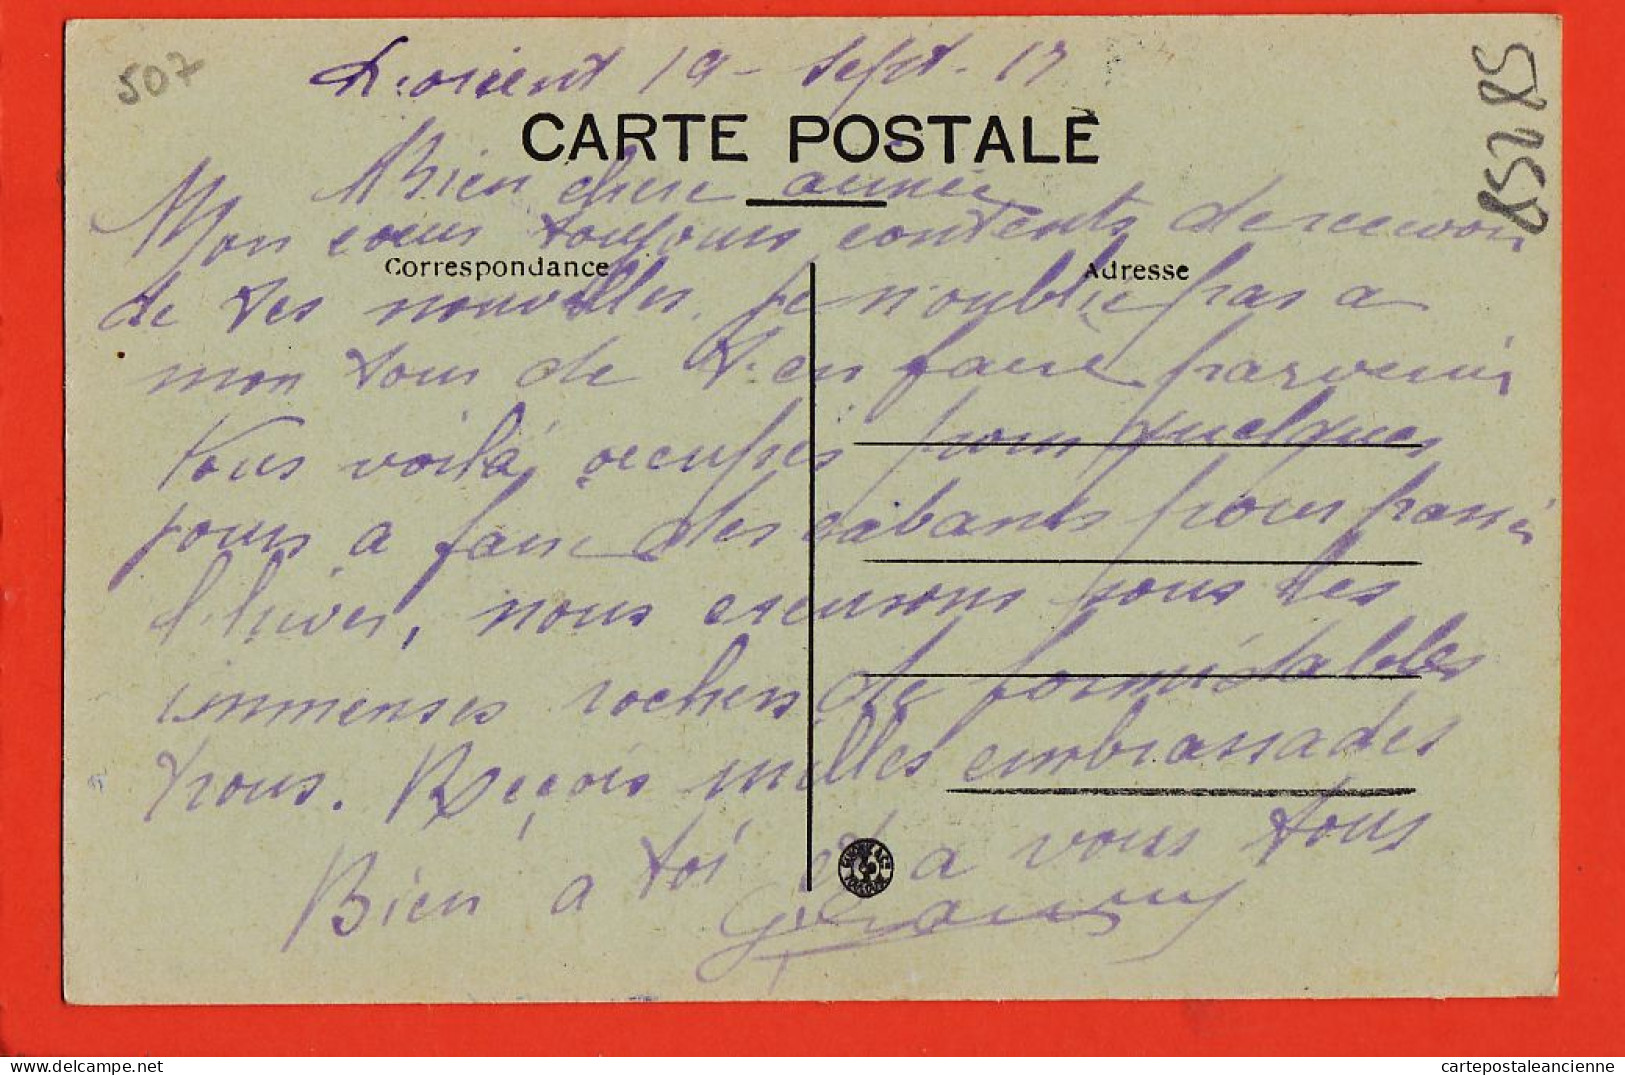 507
Lorient 19 - Sept. 17
58259
CARTE POSTALE
Bien chere aimée
Mon coeur toujours contents de recevoir
Correspondance
Adresse
de tes nouvelles, je n'oublie pas a
mon tour de t'en faire parvenir
Vous voilà occupés pour quelques
jours a faire des cabants pour passer
l'hiver, nous creusons sous les
immenses rochers de formidables
trous. Reçois milles embrassades
Bien a toi et a vous tous
cartepostaleancienne